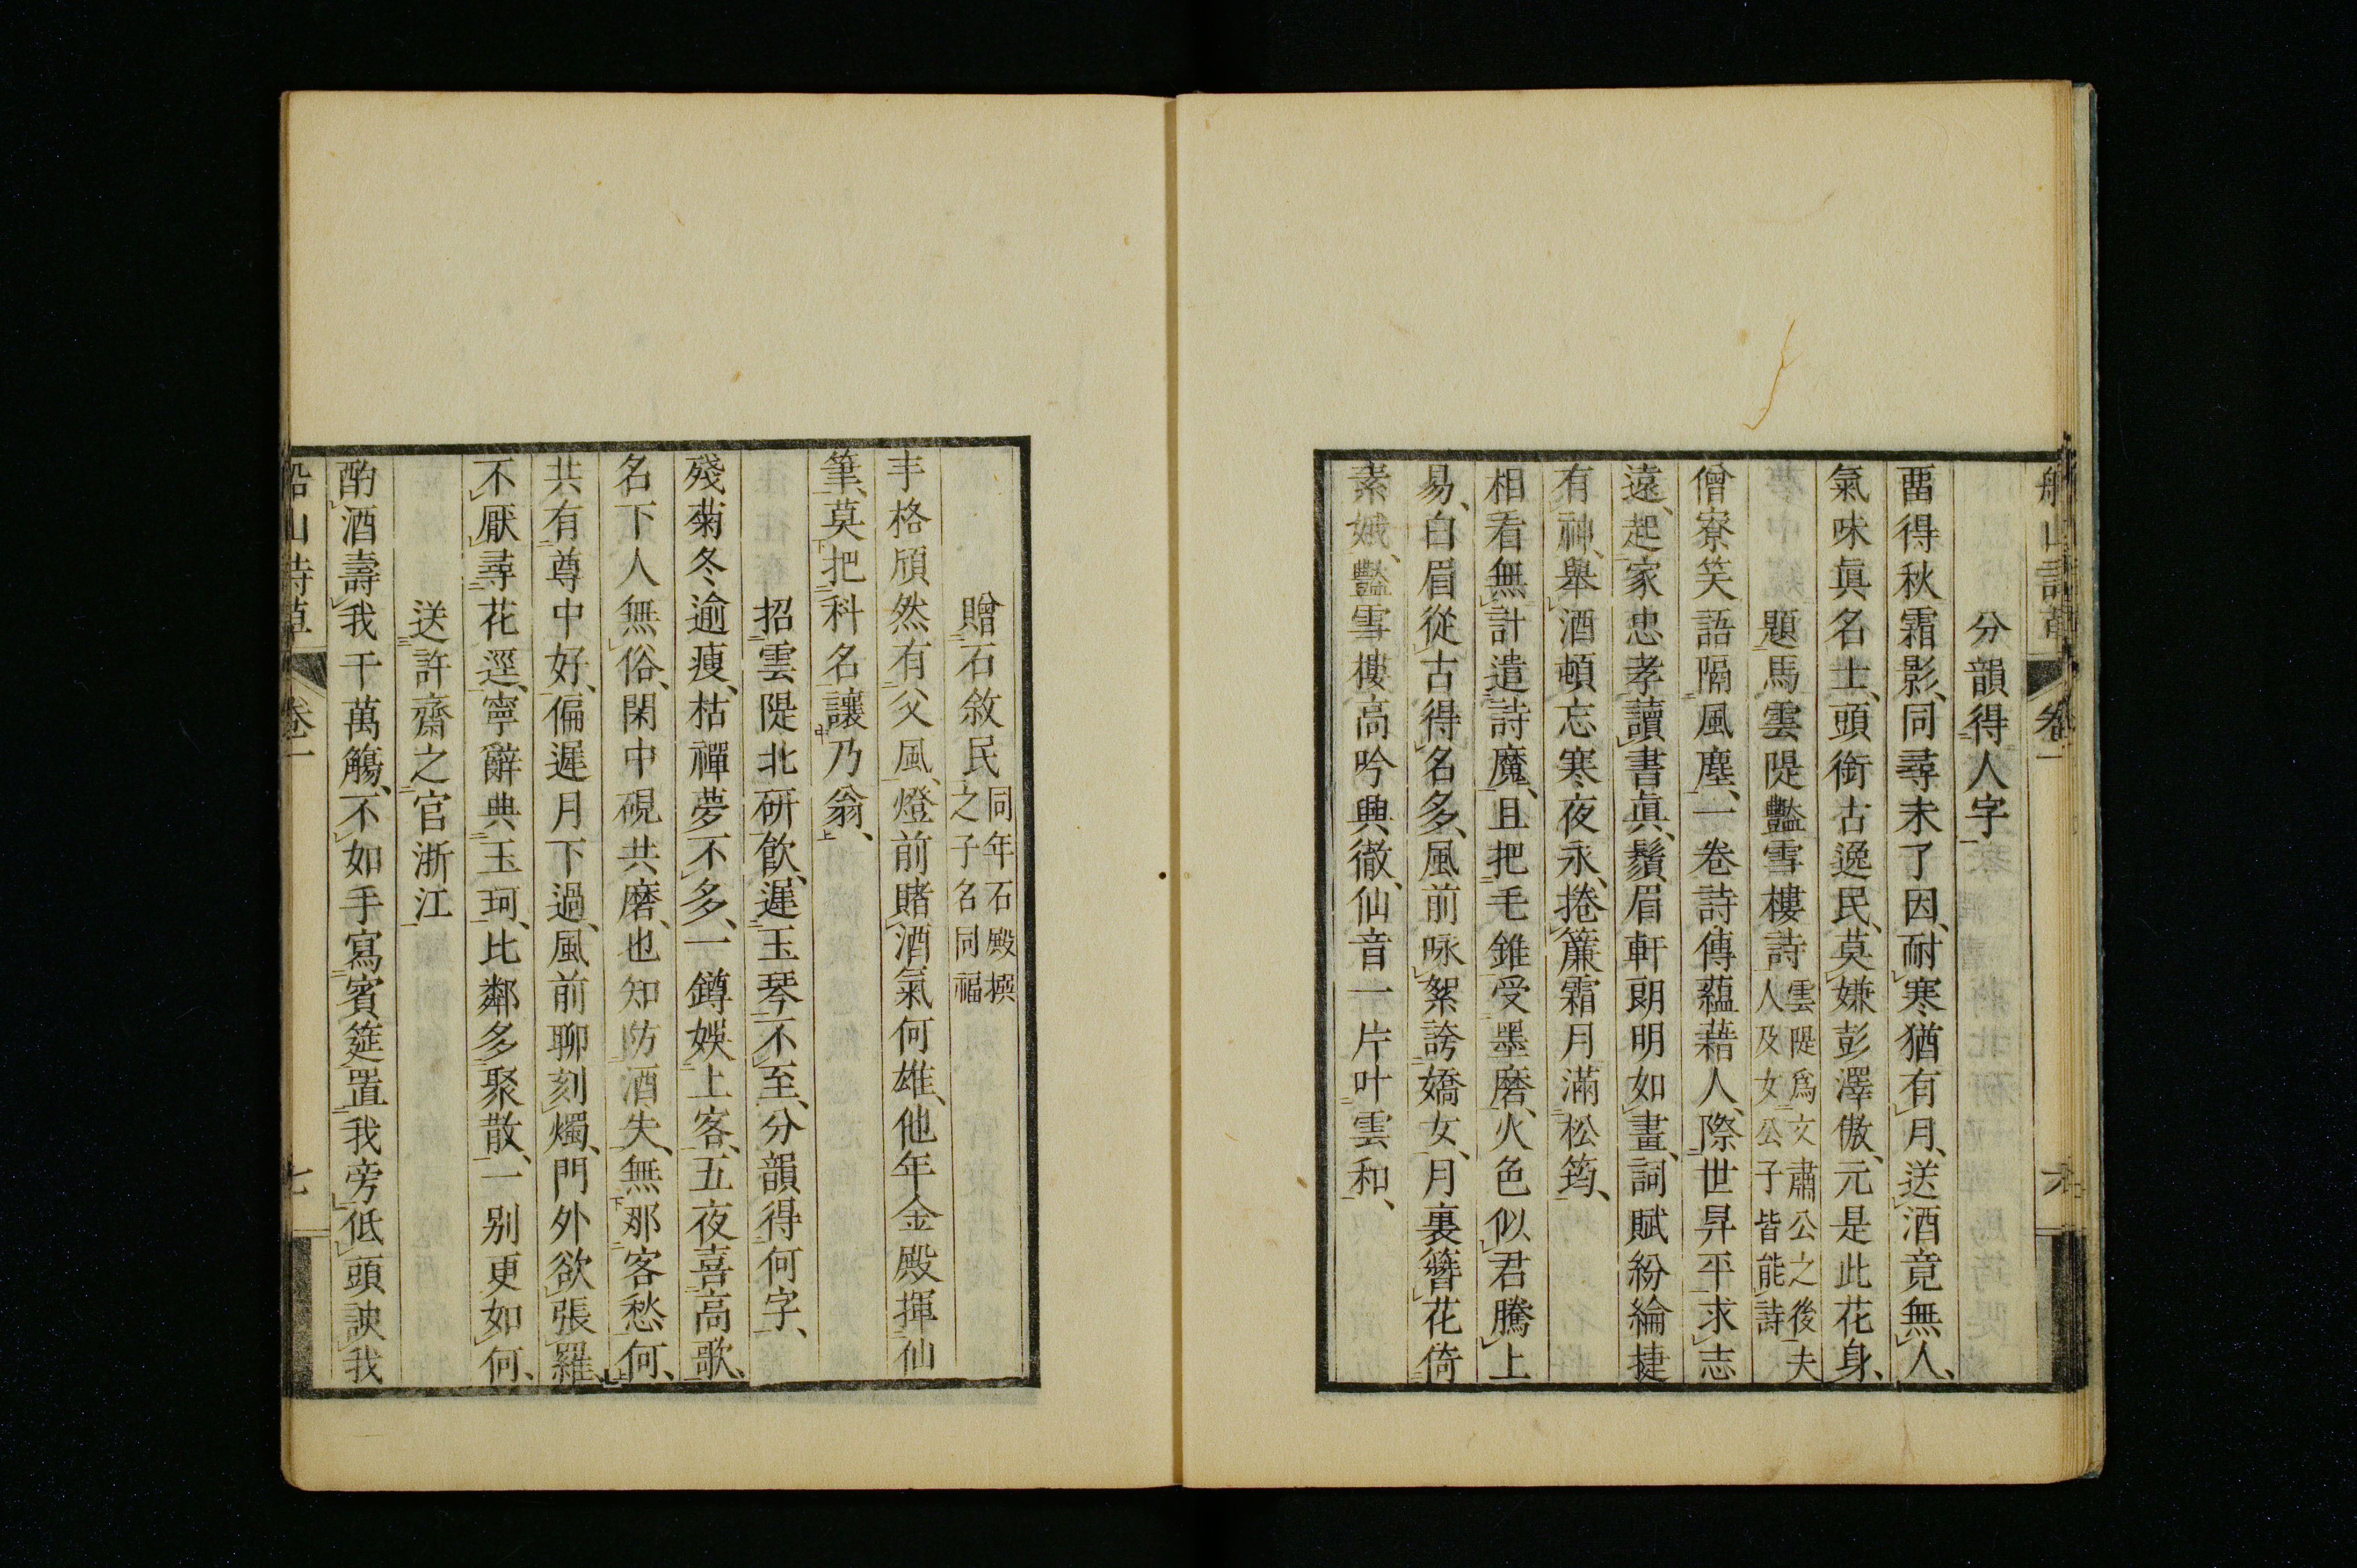 船山詩草 卷一 六
分韻得人字
畱得秋霜影、同尋未了因、耐寒猶有月、送酒竟無人、
氣味眞名士、頭銜古逸民、莫嫌彭澤傲、元是此花身、
題馬雲隄豔雪樓詩 雲隄爲文肅公之後夫
人及女公子皆能詩
僧寮笑語隔風塵、一卷詩傳蘊藉人、際世昇平求志
遠、起家忠孝讀書眞、鬚眉軒朗明如畫、詞賦紛綸捷
有神、舉酒頓忘寒夜永、捲簾霜月滿松筠、
相看無計遣詩魔、且把毛錐受墨磨、火色似君騰上
易、白眉從古得名多、風前咏絮誇嬌女、月裏簪花倚
素娥、豔雪樓高吟興徹、仙音一片叶雲和、
贈石敘民 同年石殿撰
之子名同福
丰格頎然有父風、燈前賭酒氣何雄、他年金殿揮仙
筆、莫把科名讓乃翁、
招雲隄北研飮、遲玉琴不至、分韻得何字、
殘菊冬逾瘦、枯禪夢不多、一鐏娛上客、五夜喜高歌、
名下人無俗、閑中硯共磨、也知防酒失、無那客愁何、
共有尊中好、偏遲月下過、風前聊刻燭、門外欲張羅、
不厭尋花逕、寧辭典玉珂、比鄰多聚散、一别更如何、
送許齋之官浙江
酌酒壽我千萬觴、不如手寫賓筵置我旁、低頭諛我
船山詩草 卷一 七